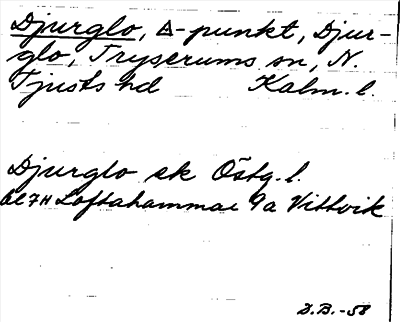 Djurglo, △-punkt, Djur-
glo, Tryserums sn, N.
Tjusts hd Kalm. l.
Djurglo sk Östg. l.
6E7H Loftahammar 9a Vittvik
D.B.-58